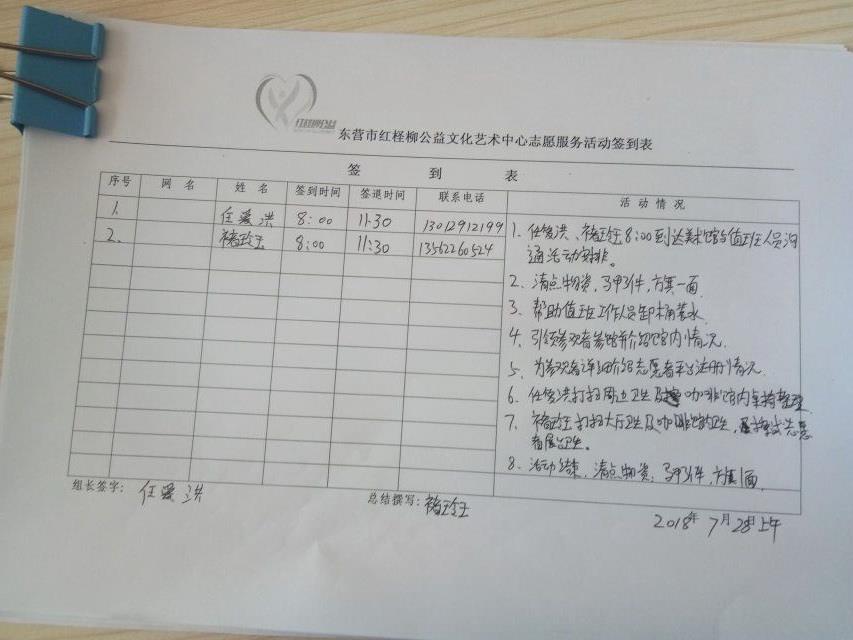 红柽柳公益
东营市红柽柳公益文化艺术中心志愿服务活动签到表
签 到 表
序号 网 名 姓 名 签到时间 签退时间 联系电话 活 动 情 况
1. 任爱洪 8:00 11:30 13012912199
2. 褚玲玉 8:00 11:30 13562260524
1. 任爱洪、褚玲玉 8:00到达美术馆与值班人员沟
通活动安排。
2. 清点物资,马甲3件,方旗一面
3. 帮助值班工作人员卸桶装水
4. 引领参观者参馆并介绍馆内情况.
5. 为参观者详细介绍志愿者平台注册情况.
6. 任爱洪打扫周边卫生及咖啡馆内书籍整理
7. 褚玲玉打扫大厅卫生及咖啡馆的卫生,志愿
者展台卫生。
8. 活动结束,清点物资:马甲3件,方旗1面.
组长签字: 任爱洪
总结撰写: 褚玲玉
2018年7月28日上午